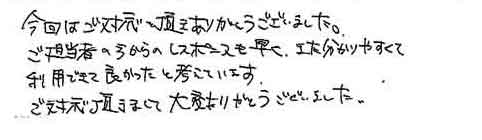 今回はご対応を頂きありがとうございました。
ご担当者の方からのレスポンスも早く、また分かりやすくて
利用できて良かったと考えています。
ご対応頂きまして大変ありがとうございました。